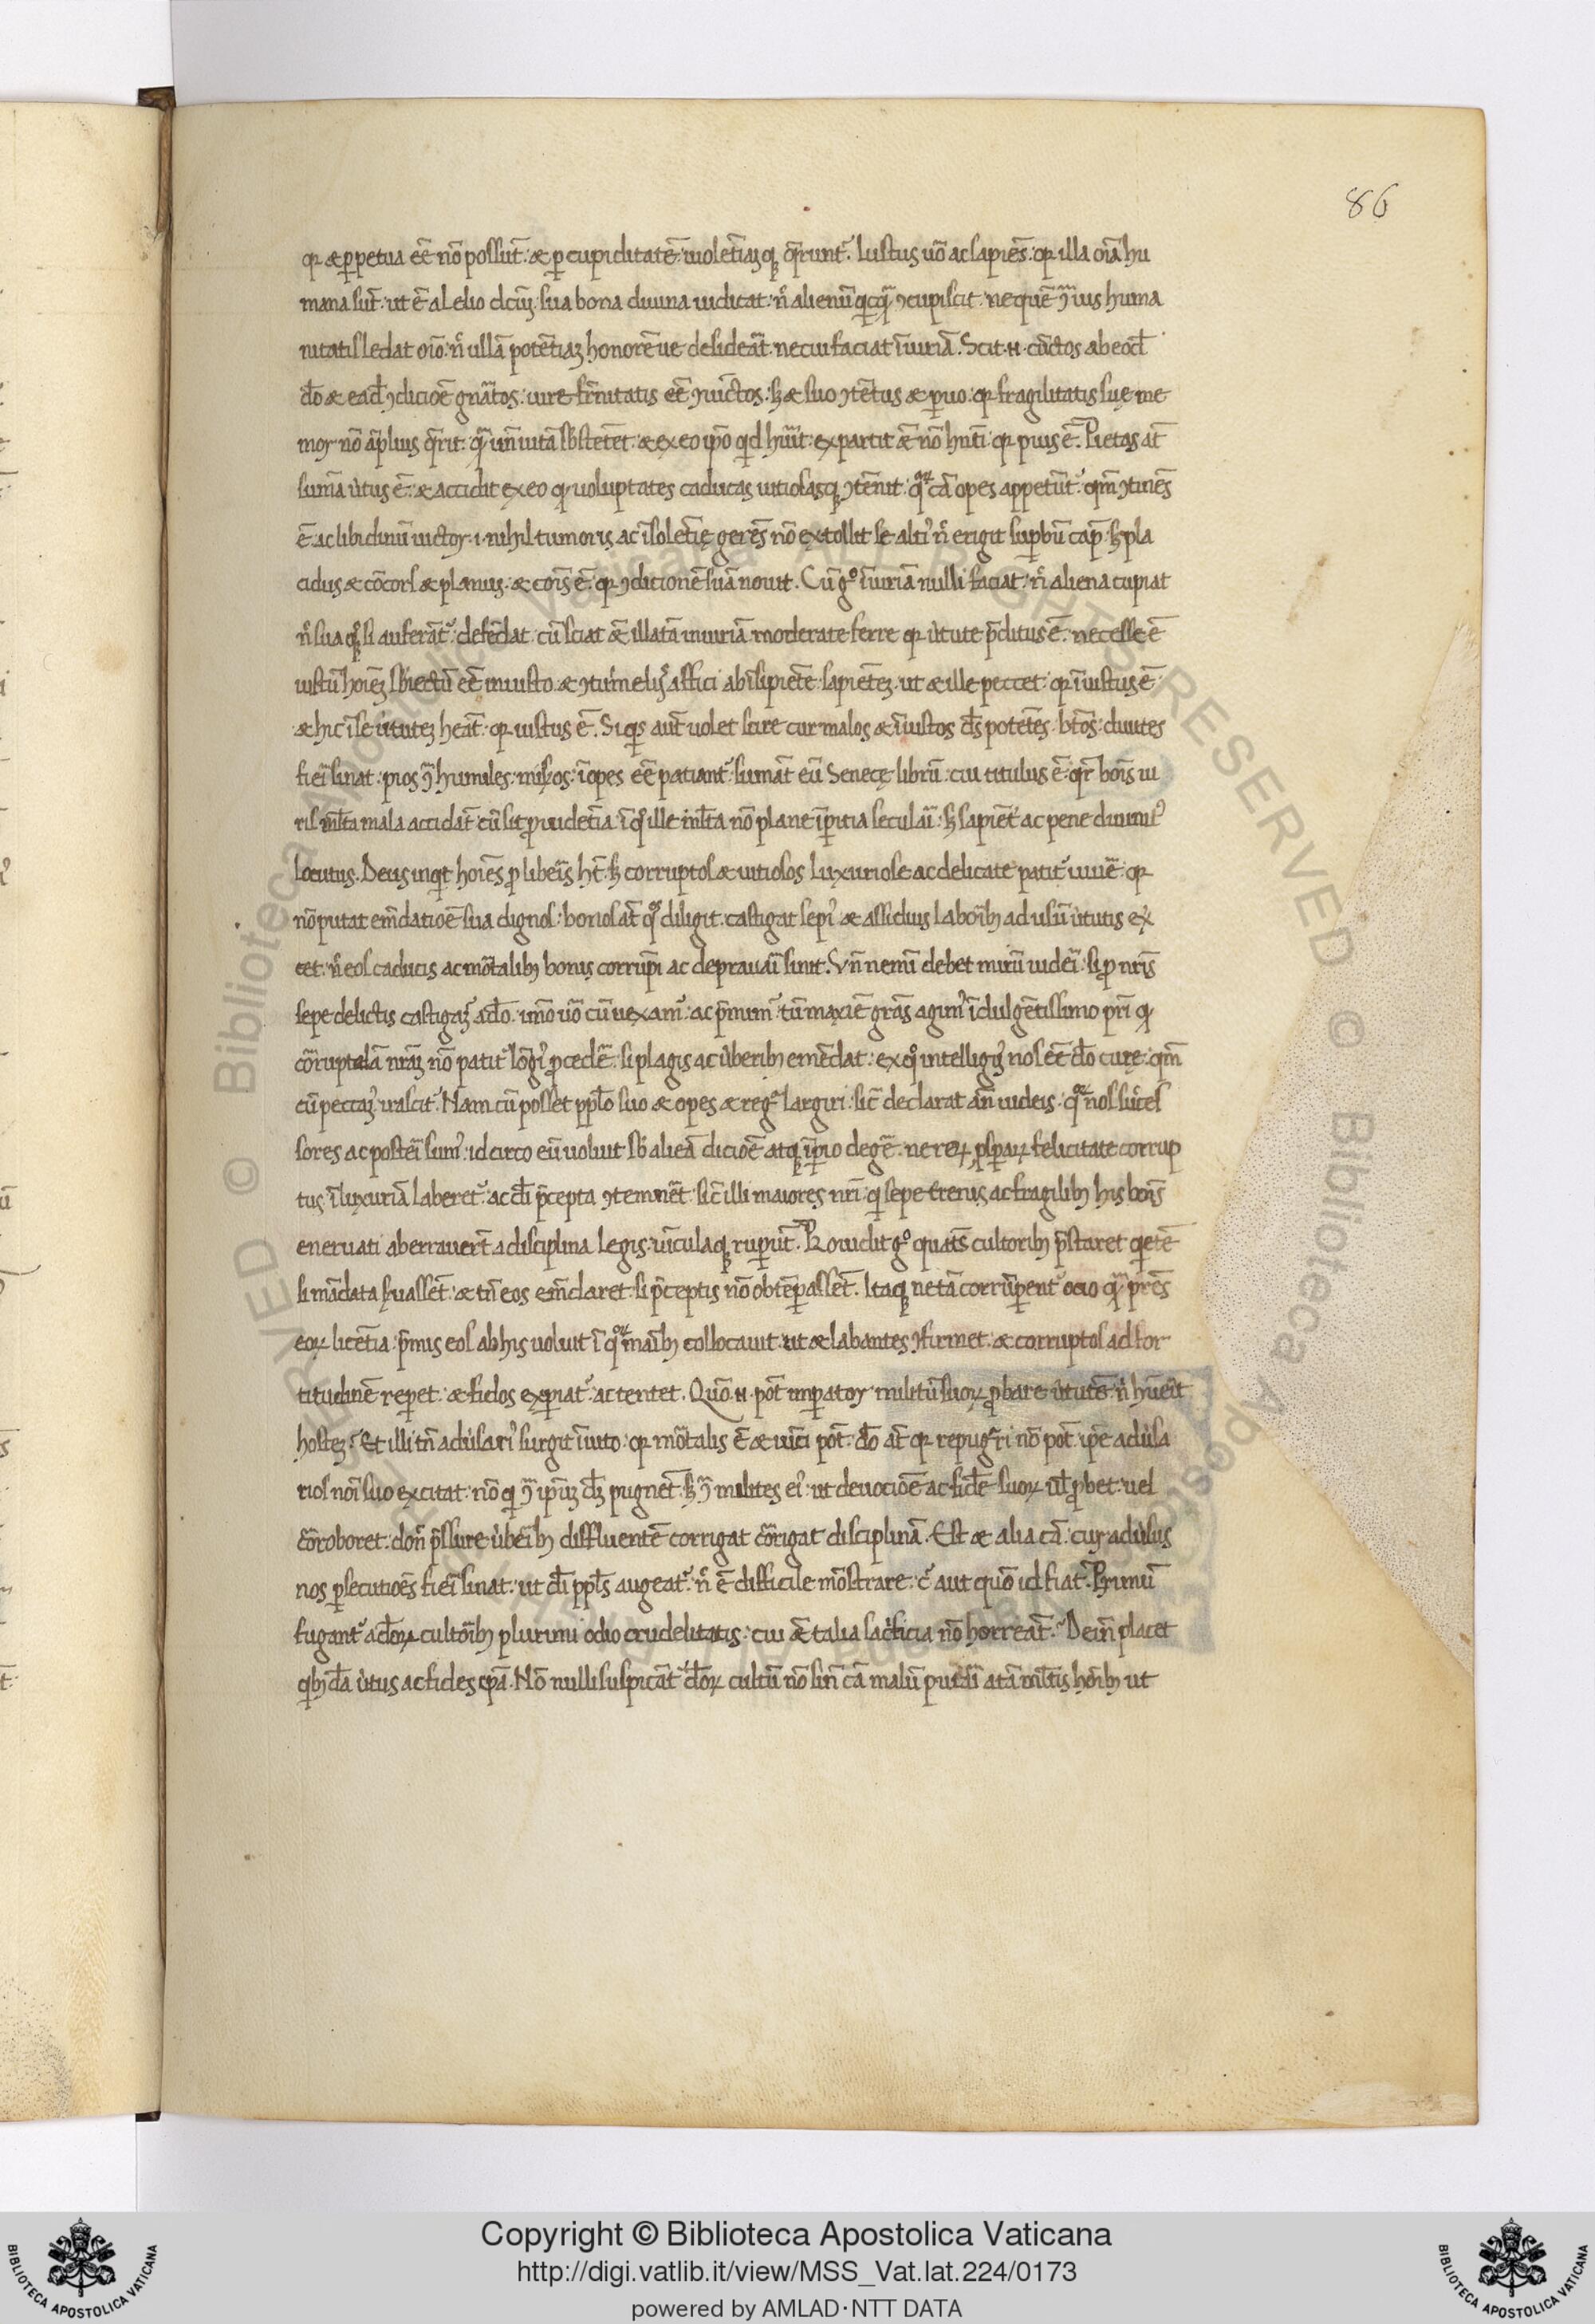 86
qr æ ꝑpetua eē nō possūt: æ ꝑ cupiditatē uiolētiaꝫ q̨ꝫ q̄runt᷑. Iustus uō ac sapiēs: qr illa oīa hu
mana sūt: ut ē a Lelio dcm̄: sua bona diuina iudicat. n̄ alienū qͥcq̄ ꝯcupiscit. ne quē ꝯͣ ius huma
nitatis ledat oīo: n̄ ullā potētiaꝫ honorē ue desideāt. ne cui faciat īiuriā. Scit .n. cūctos ab eod̄
dō æ ead̄ ꝯdicioē gnātos: iure frnitatis eē ꝯiūctos: sꝫ æ suo ꝯtētus æ ꝑuo: qr fragilitatis suę me
mor nō āplius q̄rit: q̄ un̄ uitā sb̄stetet. æ ex eo ip̄o qͥd hūit: expartit ǣ nō hn̄ti: qr pius ē. Pietas at̄
sūma u̓tus ē: æ accidit ex eo qr uoluptates caducas uitiosasq̨ꝫ ꝯtēnit: qͣꝝ cā opes appetūt᷑. qm̄ ꝯtinēs
ē ac libidinū uictor .i. nihil tumoris ac īsolētię gerēs nō extollit se alti᷑ n̄ erigit suꝑbū cap̄. sꝫ pla
cidus æ cōcors æ planus: æ cōis ē: qr ꝯdicionē suā nouit. Cū gͦ īiuriā nulli faciat: n̄ aliena cupiat
n̄ sua q̨ꝫ si auferāt᷑ defēdat: cū sciat ǣ illatā iniuriā moderate ferre qr u̓tute p̄ditus ē: necesse ē
iustū hoīeꝫ sb̄iectū eē iniusto: æ ꝯtumelijs affici ab īsipiēte sapiēteꝫ. ut æ ille peccet: qr īiustus ē
æ hic īse u̓tuteꝫ heāt: qr iustus ē. Siqͥs aut̄ uolet scire cur malos æ īiustos d̄s potētes. btōs. diuites
fieī sinat: pios ꝯͣ humiles. mis̓os. īopes eē patiant᷑. sumāt eū Senecę librū: cui titulus ē: qr̄ bōis ui
ris ml̄ta mala accidāt cū sit ꝓuidētia: ī qͦ ille ml̄ta nō plane īꝑitia seculaī: sꝫ sapiēt᷑ ac pene diuinit᷑
locutus. Deus inqͥt hoīes ꝓ libeīs ht̄. sꝫ corruptos æ uitiosos Luxuriose ac delicate patit᷑ uiuē: qr
nō putat emēdatioē sua dignos: bonos at̄ qͦs diligit: castigat sepi᷑ æ assiduis Laboībꝫ ad usū u̓tutis ex̓
cet: n̄ eos caducis ac mōtalibꝫ bonis corrumpi ac deprauaī sinit. Vn̄ nemi᷑ debet mirū uideī. si ꝓ nr̄is
sepe delictis castigam᷑ a dō. imo uō cū uexam᷑: ac p̄mum᷑ tū maxīe grās agim᷑ īdulgētissimo pr̄i qr
cōruptelā nr̄aꝫ nō patit᷑ lōgi᷑ ꝓcedē: si plagis ac u̓beribꝫ emēdat: ex qͦ intelligim᷑ nos eē dō cure: qm̄
cū peccam᷑ irascit᷑. Nam cū posset ppl̄o suo æ opes æ regͣ largiri: sic̄ declarat an̄ iudeis: qͦꝝ nos succes
sores ac posteī sum᷑: id circo eū uoluit sb̄ alienā dicioē atq̨ꝫ īꝑio degē: ne reꝝ ꝓsꝑaꝝ felicitate corrup
tus ī luxuriā laberet᷑. ac dī p̄cepta ꝯtemnēt. sic̄ illi maiores nr̄i: qͥ sepe terenis ac fragilibꝫ his bōis
eneruati aberrauer̄t a disciplina legis: uīculaq̨ꝫ ruꝑūt. Prouidit gͦ quatn̄s cultoribꝫ p̄staret qͥetē
si mādata s̓uassēt. æ tn̄ eos emēdaret. si p̄ceptis nō obtēꝑassēt. Itaq̨ꝫ ne tā corrūꝑent᷑ ocio q̄ p̄res
eoꝝ licētia: p̄mis eos ab his uoluit ī qͦꝝ maībꝫ collocauit: ut æ labantes ꝯfirmet: æ corruptos ad for
titudinē reꝑet: æ fidos exꝑiat᷑. ac tentet. Quō .n. pōt imꝑator militū suoꝝ ꝓbare u̓tutē: n̄ hūeīt
hosteꝫ? Et illi tn̄ adu̓sari᷑ surgit īuito: qr mōtalis ē æ uīci pōt. dō at̄ qr repugͣri nō pōt. ip̄e adu̓sa
rios nōi suo excitat: nō qͥ ꝯͣ ip̄uꝫ dm̄ pugnēt. sꝫ ꝯͣ milites ei᷑: ut deuocioē ac fidē suoꝝ ul̄ ꝓbet: uel
cōroboret: don̄ p̄ssure u̓beībꝫ diffluentē corrigat cōrigat disciplinā. Est æ alia cā: cur adu̓sus
nos ꝑsecutioēs fieī sinat: ut dī ppl̄s augeat᷑. n̄ ē difficile mōstrare: c᷑ aut quō id fiat. Primū
fugant᷑ a deoꝝ cultoībꝫ plurimi odio crudelitatis: cui ǣ talia sacͥficia nō horreāt. Dein̄ placet
qͥbꝫdā u̓tus ac fides ip̄a. Nō nulli suspicāt᷑ deoꝝ cultū nō sin̄ cā malū putaī a tā ml̄tis hoībꝫ ut
Copyright © Biblioteca Apostolica Vaticana
http://digi.vatlib.it/view/MSS_Vat.lat.224/0173
powered by AMLAD·NTT DATA